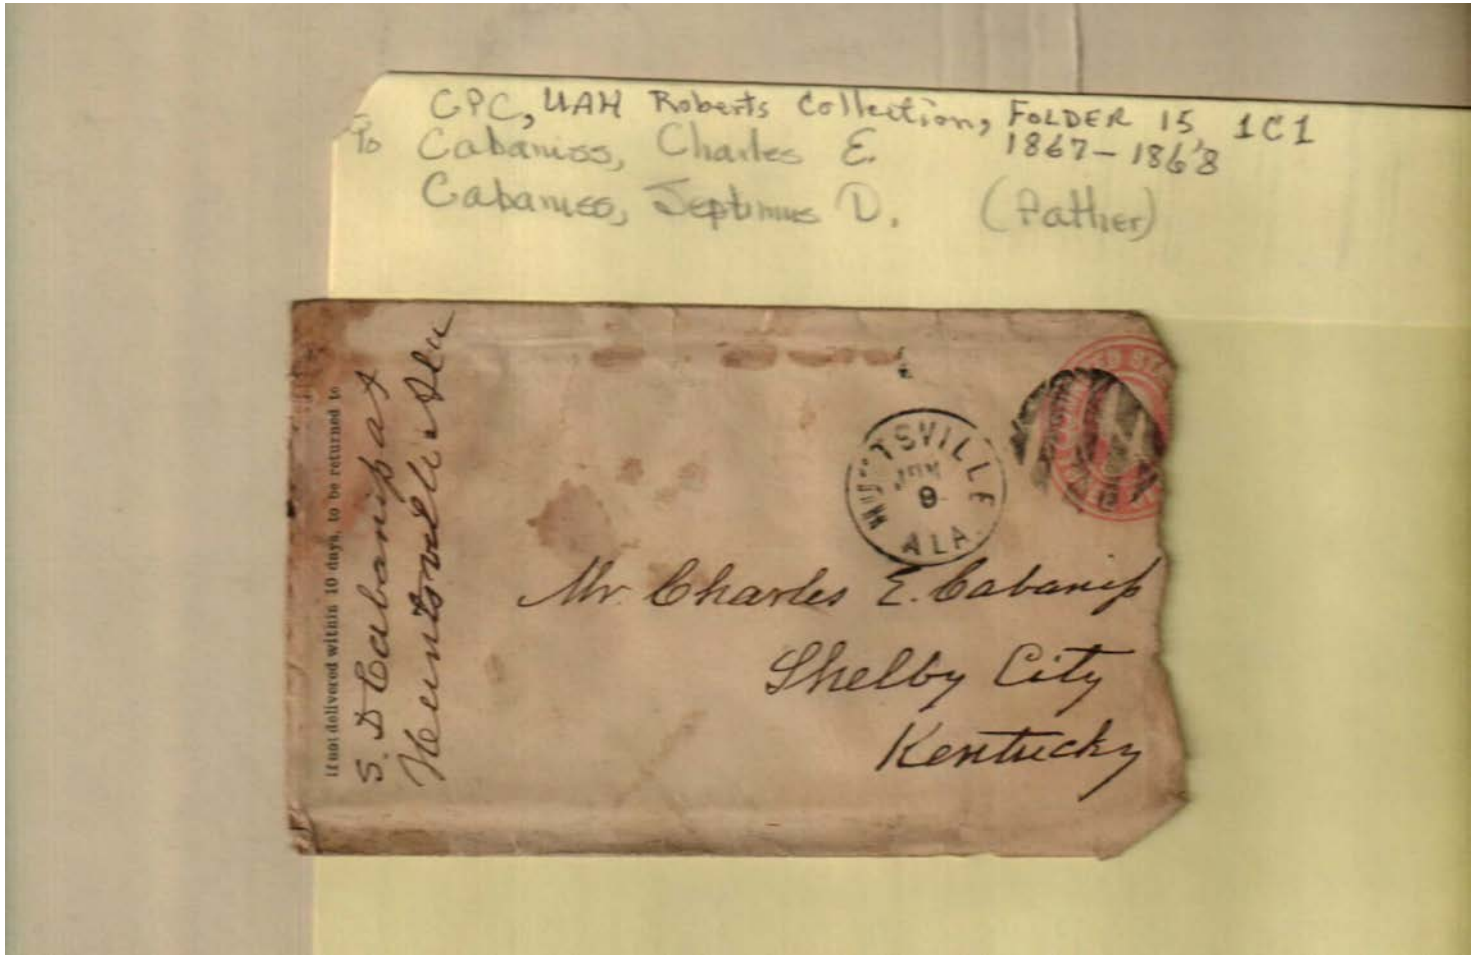 CPC, UAH Roberts Collection, FOLDER 15 1C1
To Cabaniss, Charles E. 1867-1868
Cabaniss, Septimus D. (Father)
If not delivered within 10 days, to be returned to
S. D Cabaniss at
Huntsville Ala
HUNTSVILLE
JUN
9
ALA.
Mr. Charles E. Cabaniss
Shelby City
Kentucky